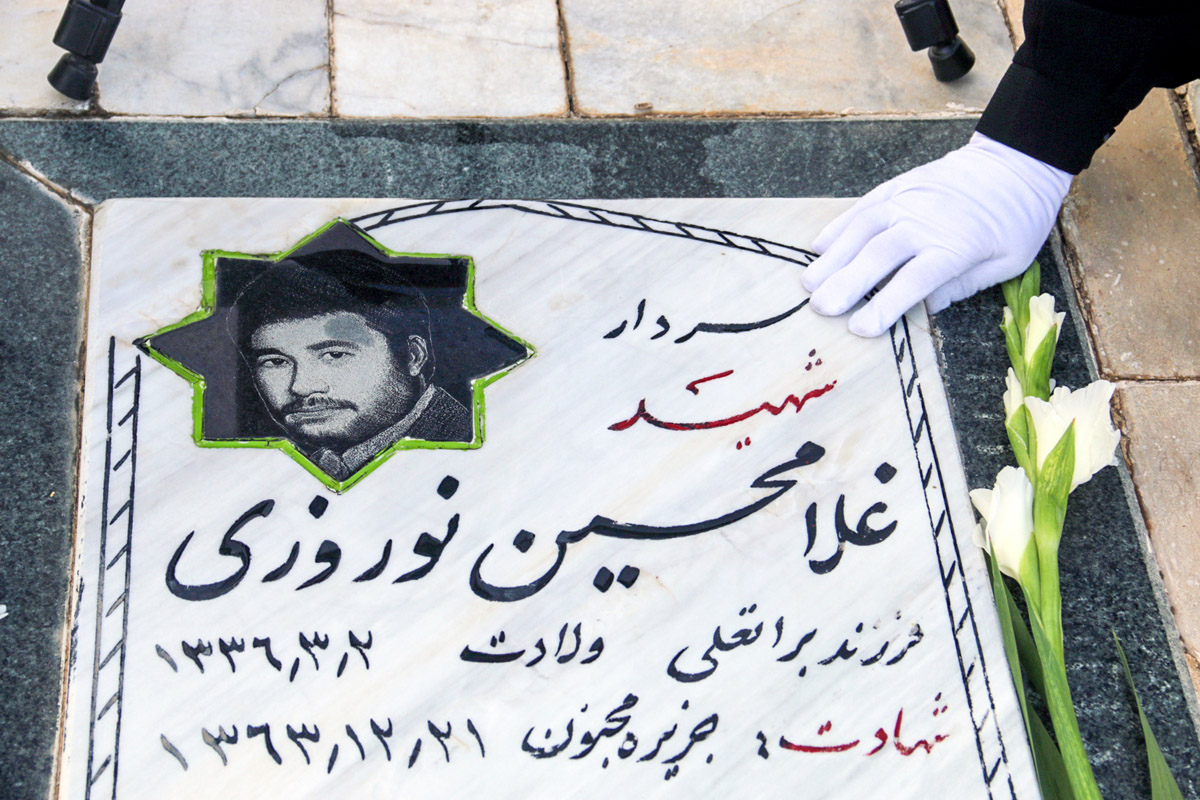 سردار
شهید
غلامحسین نوروزی
فرزند براتعلی ولادت ۱۳۳۶٫۳٫۲
شهادت: جزیره مجنون ۱۳۶۳٫۱۲٫۲۱